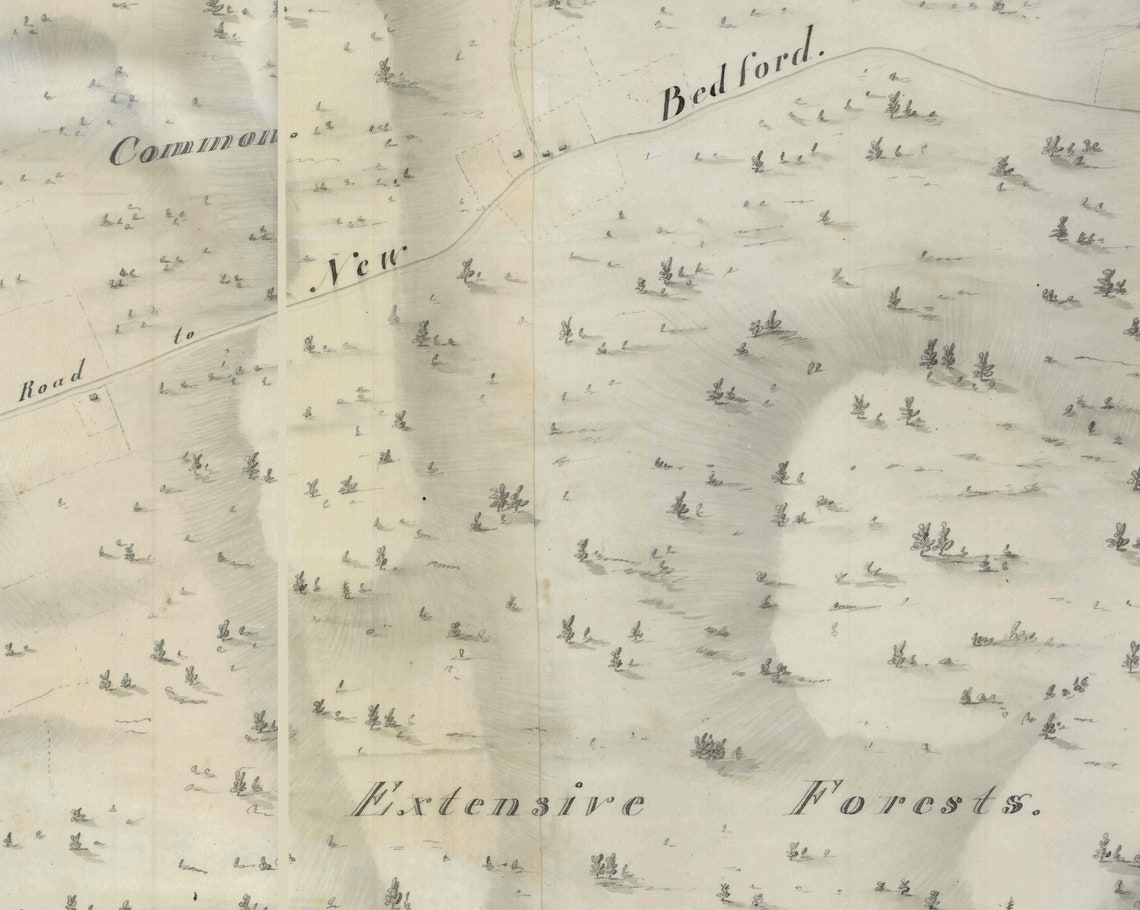 Common.
Road to New Bedford.
Extensive Forests.